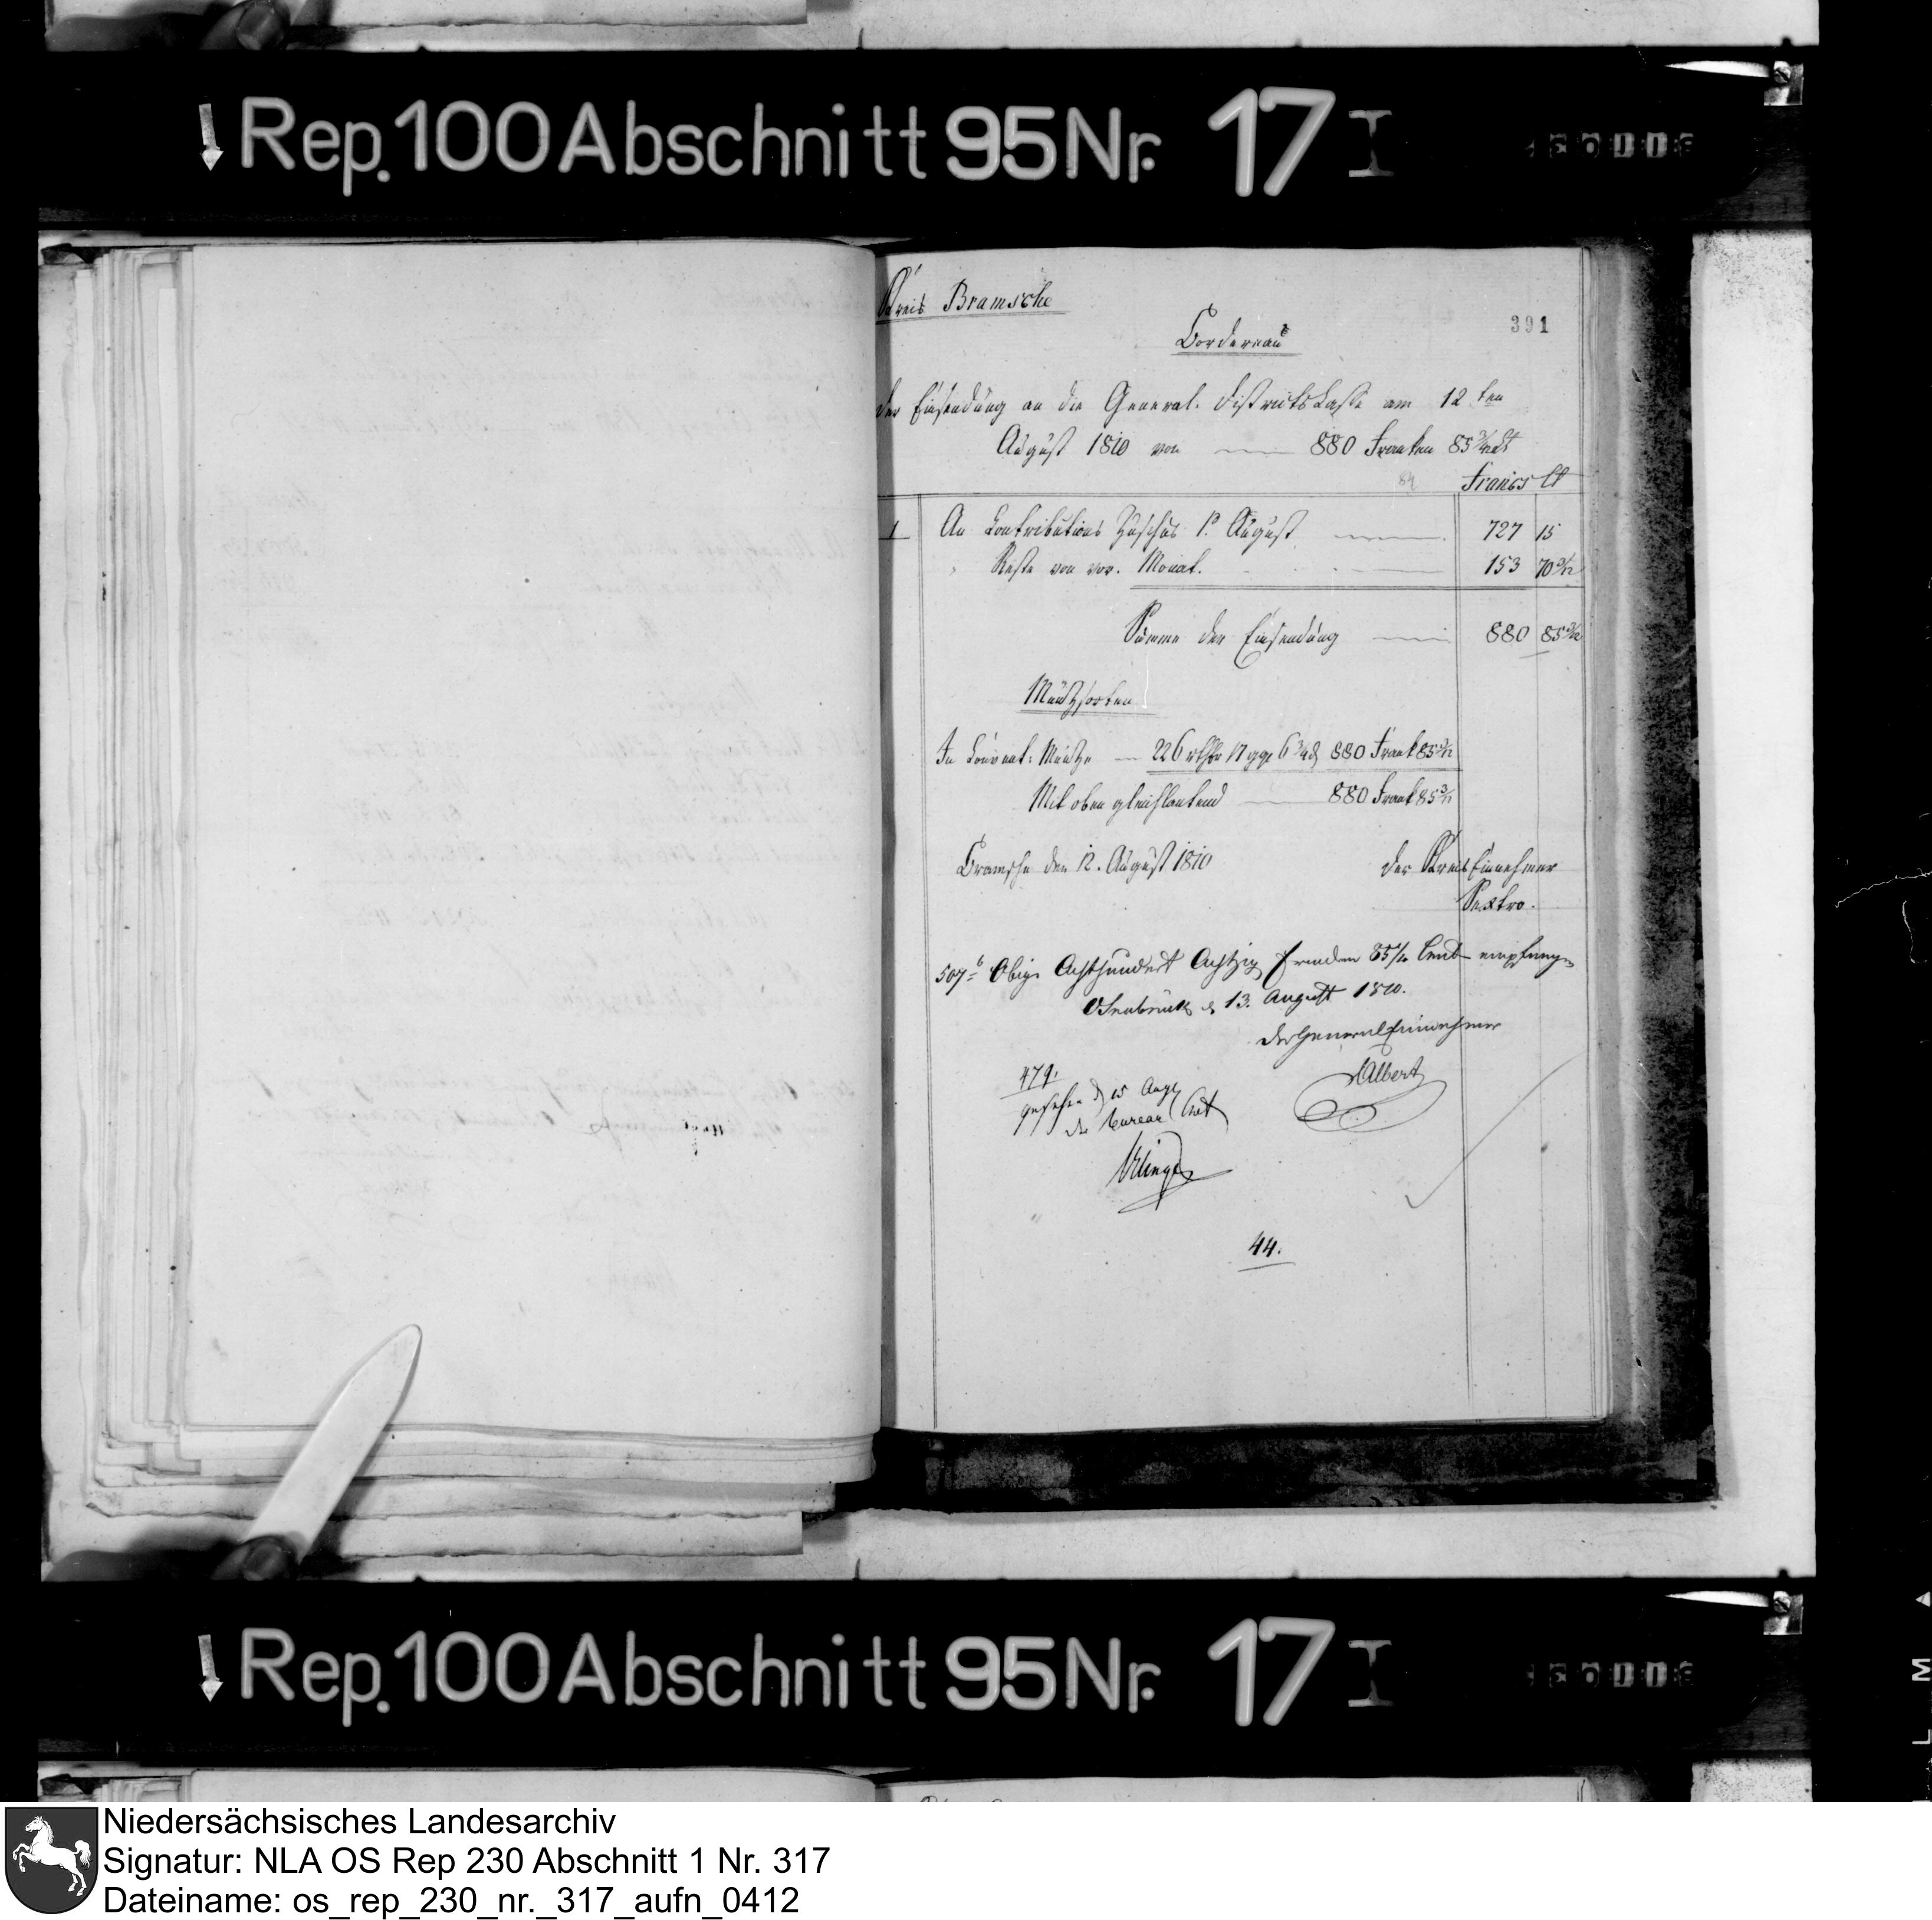 Rep. 100 Abschnitt 95 Nr. 17 I
Kreis Bramsche
391
Bordereau
der Einsendung an die General-Districts Casse am 12ten
August 1810 von 880 Franken 85 3/12 Ct
84
Francs Ct
1 An Contributions Zuschus p. August 727 15
Reste von vor. Monat. 153 70 3/12
Summe der Einsendung 880 85 3/12
Müntzsorten
In Convent: Müntze 226 rthlr 17 ggr 6 3/4 d 880 Frank 85 3/12
Mit oben gleichlautend 880 Frank 85 3/12
Bramsche den 12. August 1810
der Kreis Einnehmer
Sextro.
507 Obige Achthundert Achtzig Franken 85 Cent empfangen
Osnabrück d 13. August 1810.
der General Einnehmer
Albert
479.
gesehen d 15 Aug
der Bureau Chef
44.
Rep. 100 Abschnitt 95 Nr. 17 I
Niedersächsisches Landesarchiv
Signatur: NLA OS Rep 230 Abschnitt 1 Nr. 317
Dateiname: os_rep_230_nr._317_aufn_0412